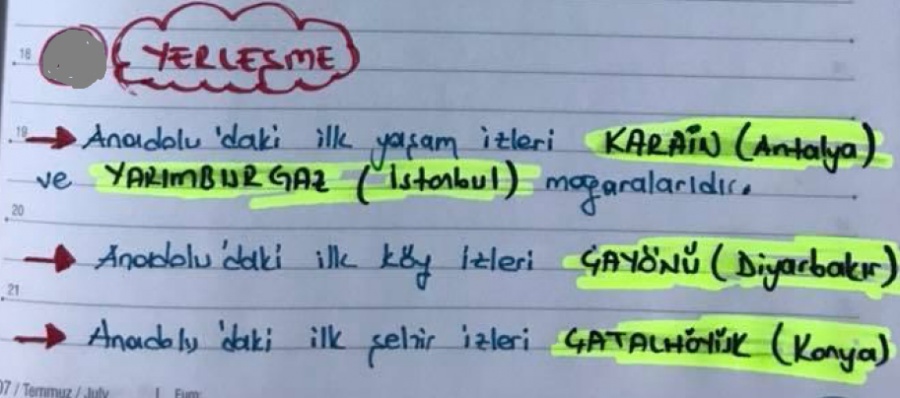 18
YERLEŞME
19 → Anadolu'daki ilk yaşam izleri KARAİN (Antalya)
ve YARIMBURGAZ (İstanbul) mağaralarıdır.
20
→ Anadolu'daki ilk köy izleri ÇAYÖNÜ (Diyarbakır)
21
→ Anadolu'daki ilk şehir izleri ÇATALHÖYÜK (Konya)
07 / Temmuz / July